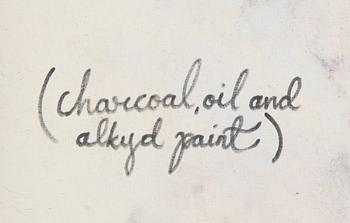 (charcoal, oil and
alkyd paint)